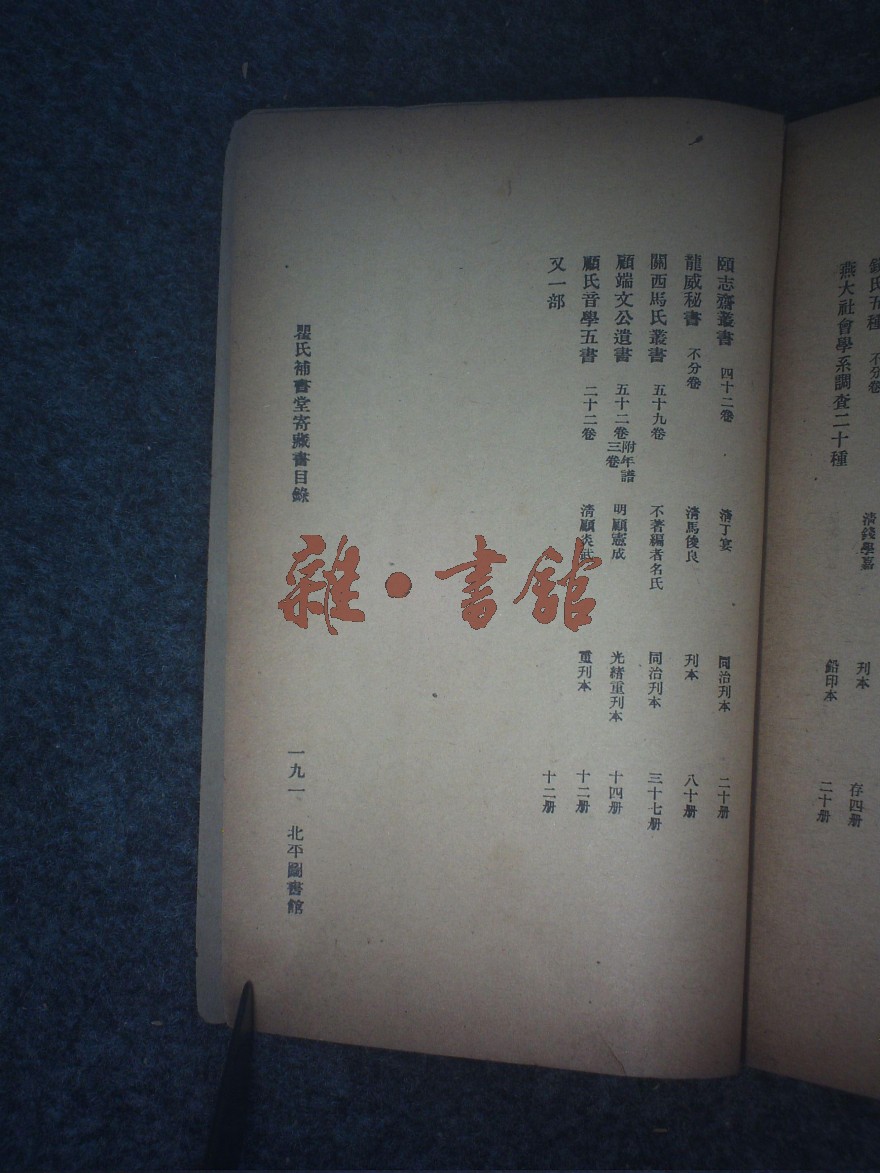 錢氏五種 不分卷 清錢學嘉 刊本 存四册
燕大社會學系調查二十種 鉛印本 二十册
頤志齋叢書 四十二卷 清丁宴 同治刊本 二十册
龍威秘書 不分卷 清馬俊良 刊本 八十册
關西馬氏叢書 五十九卷 不著編者名氏 同治刊本 三十七册
顧端文公遺書 五十二卷附年譜三卷 明顧憲成 光緒重刊本 十四册
顧氏音學五書 二十二卷 清顧炎武 重刊本 十二册
又一部 十二册
瞿氏補書堂寄藏書目錄 一九一 北平圖書館
雜·書館